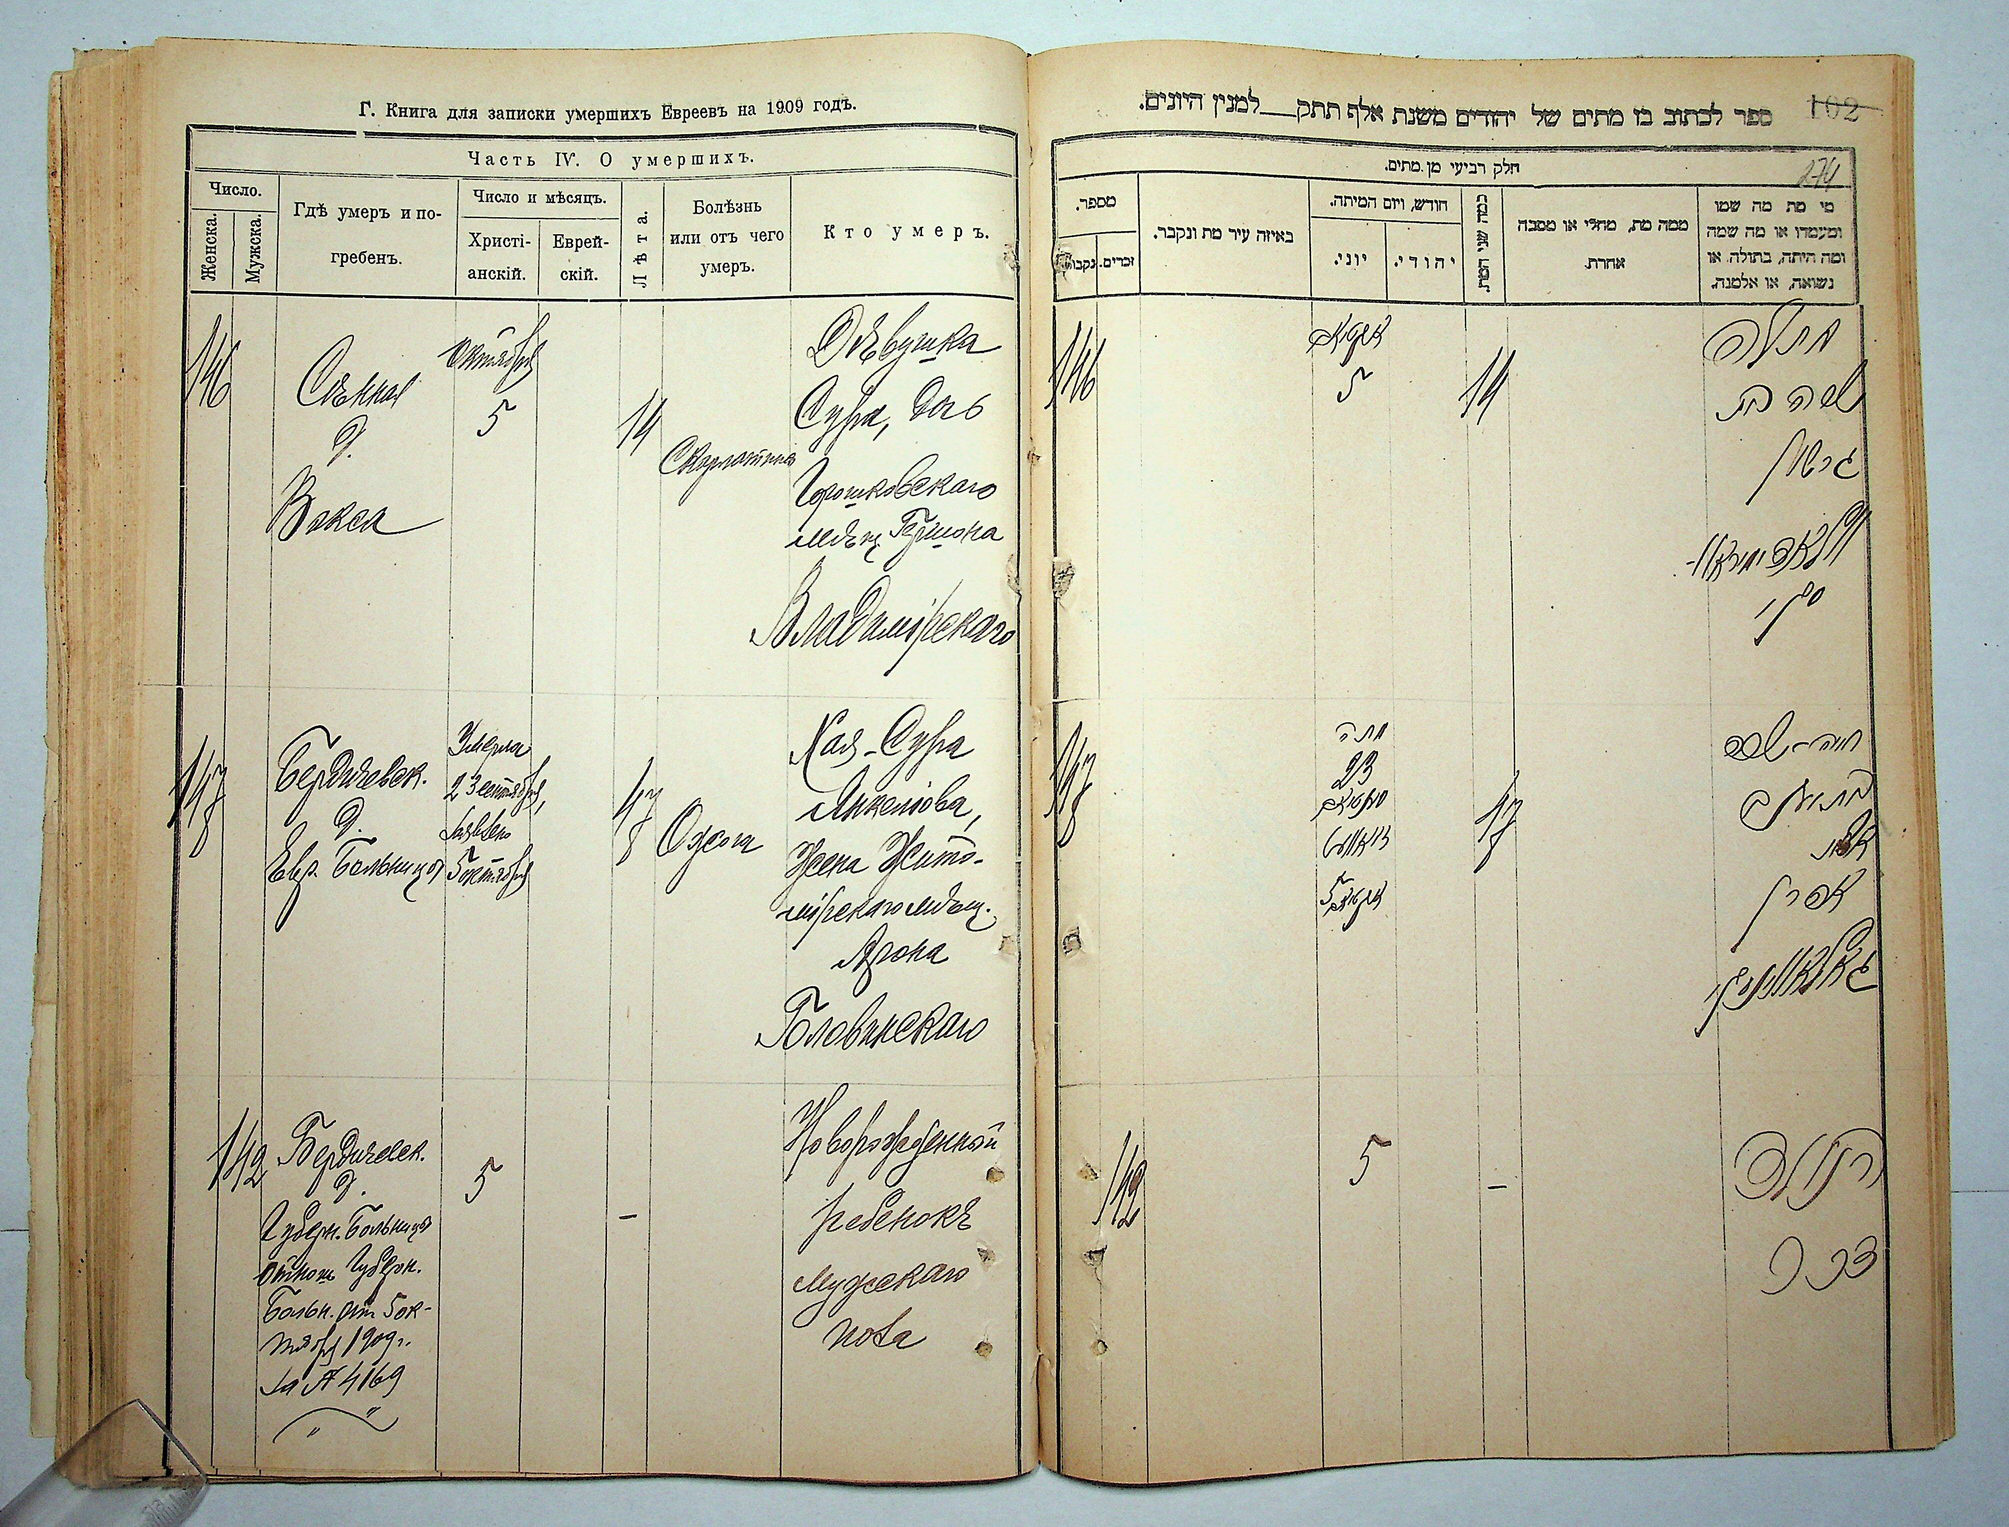 Г. Книга для записки умершихъ Евреевъ на 1909 годъ.
Часть IV. О умершихъ.
Число.
Женска.
Мужска.
Гдѣ умеръ и по-
гребенъ.
Число и мѣсяцъ.
Христі-
анскій.
Еврей-
скій.
Лѣта.
Болѣзнь
или отъ чего
умеръ.
Кто умеръ.
146
Сѣнная
д.
Вакса
Октября
5
14
Скарлатина
Дѣвушка
Сура, дочь
Горошковскаго
мѣщ. Гершона
Владимірскаго
147
Бердичевск.
д.
Евр. Больницы
Умерла
23 сентября,
заявлено
5 октября
47
Ожога
Хая-Сура
Янкелева,
жена Жито-
мірскаго мѣщ.
Арона
Головинскаго
142
Бердичевск.
д.
Губерн. Больницы
отнош. Губерн.
Больн. от 5 ок-
тября 1909 г.
за № 4169
5
–
Новорожденный
ребенокъ
мужскаго
пола
ספר לכתוב בו מתים של יהודים משנת אלף תתק למנין היונים.
102
174
חלק רביעי מן מתים.
מספר.
נקבות
זכרים.
באיזה עיר מת ונקבר.
חודש, ויום המיתה.
יוני.
יהודי.
כמה שני המת.
ממה מת, מחלי או מסבה
אחרת
מי מת מה שמו
ומעמדו או מה שמה
ומה היתה, בתולה או
נשואה, או אלמנה.
146
5
14
שרה בת
גרשון
147
מתה
23
5
47
אשת
אהרן
142
5
–
הילד
זכר